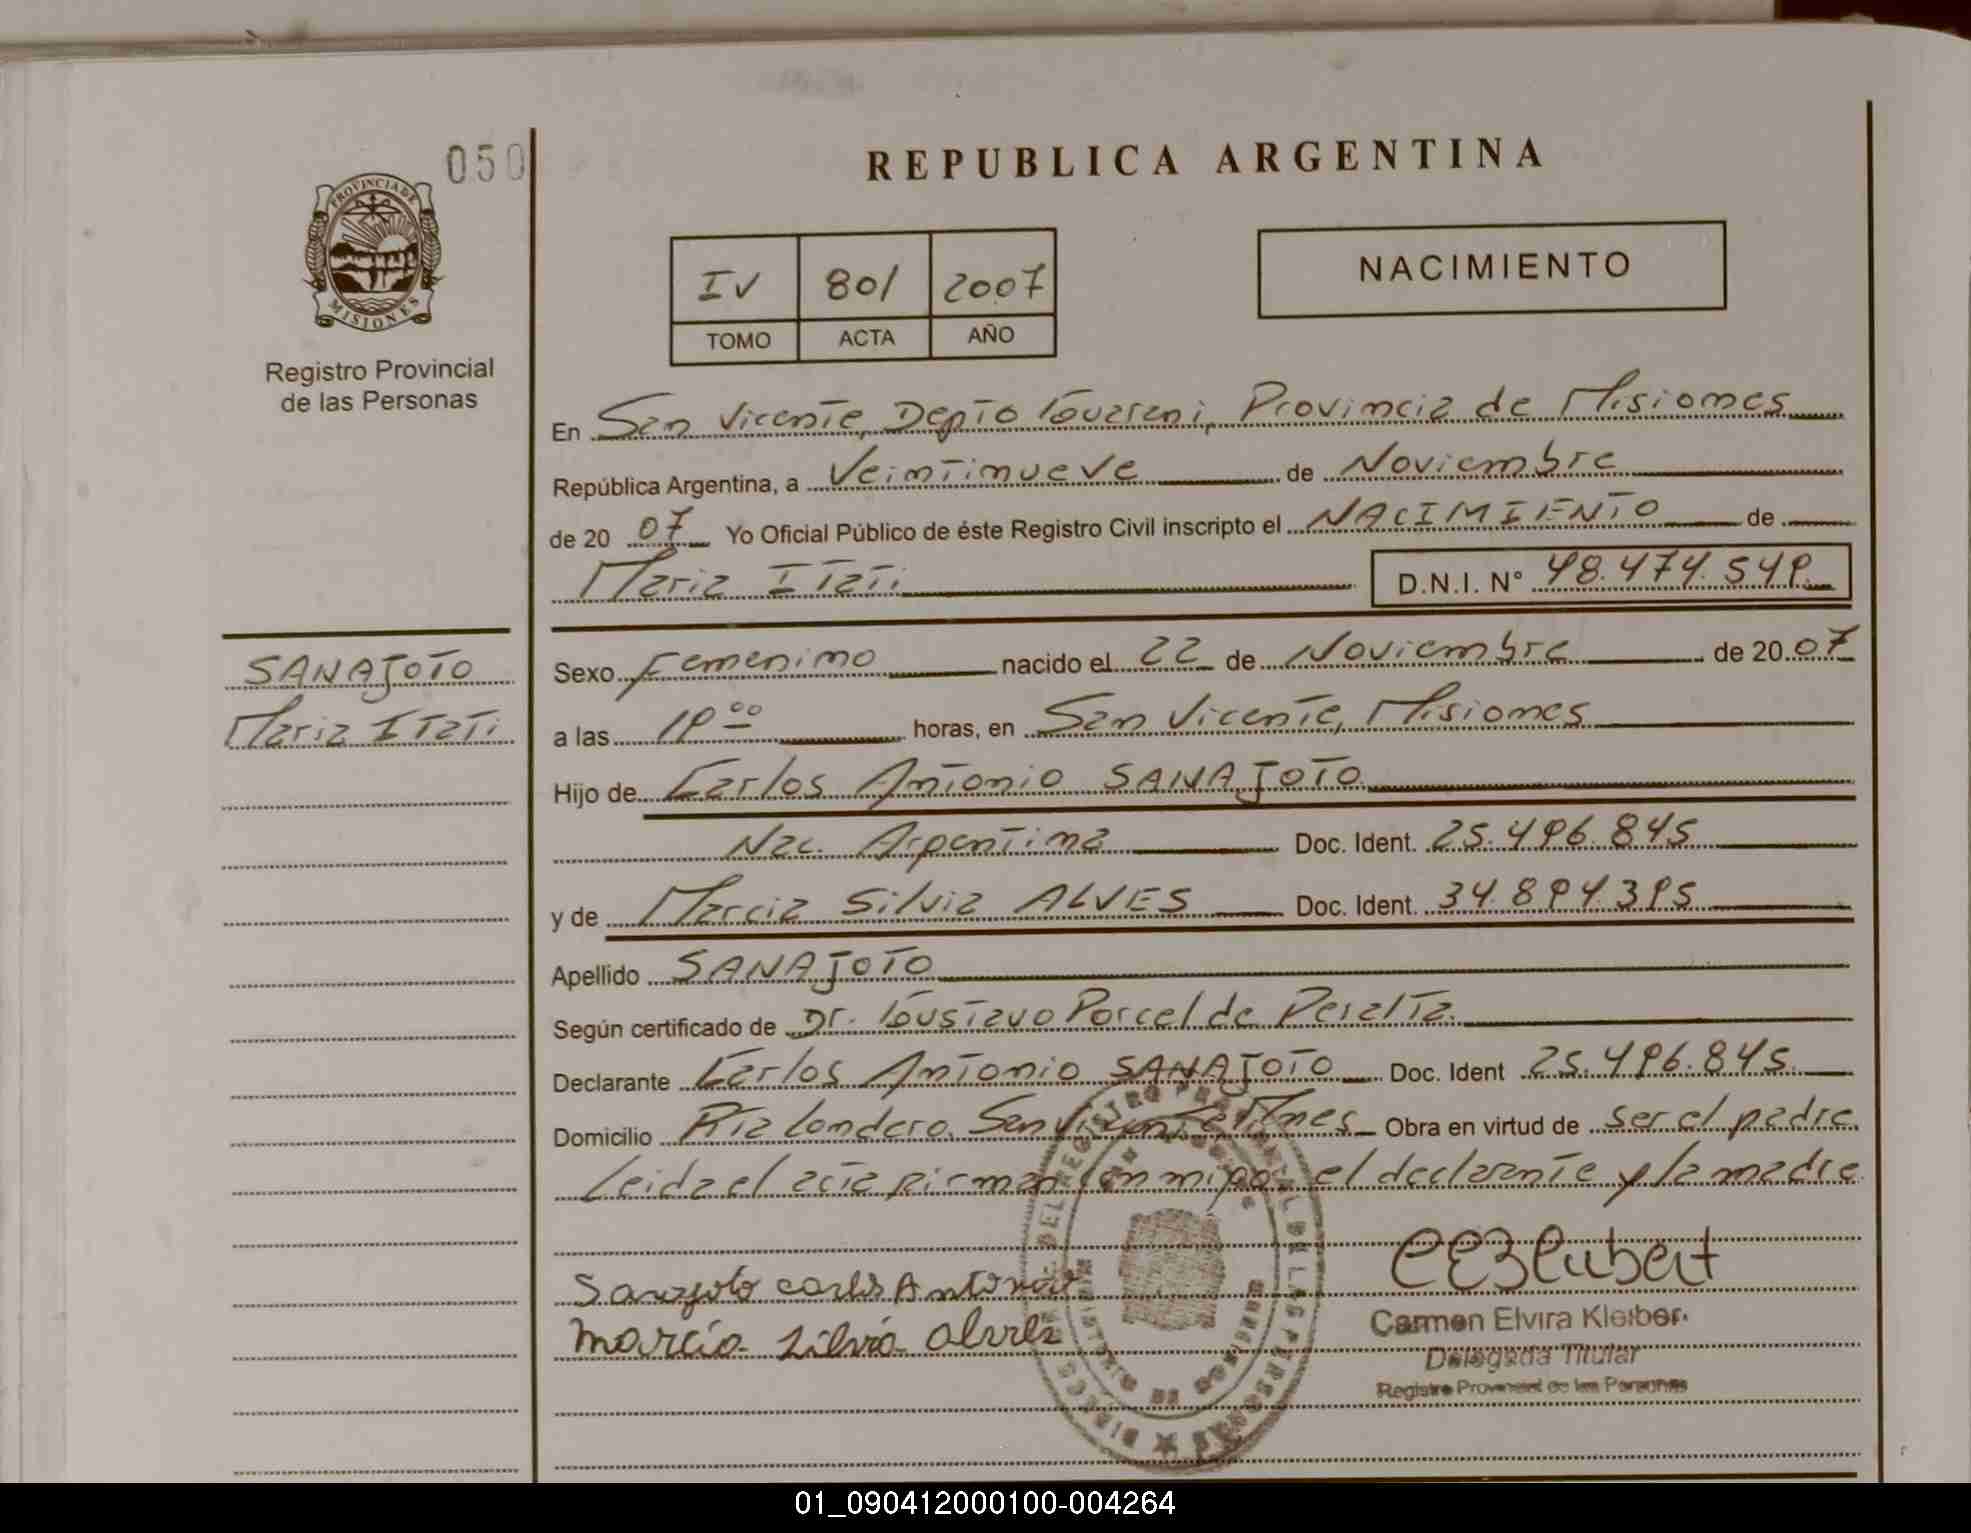 050
PROVINCIA DE
MISIONES
Registro Provincial
de las Personas
REPUBLICA ARGENTINA
IV 801 2007
TOMO ACTA AÑO
NACIMIENTO
En San Vicente, Depto Guarani, Provincia de Misiones
República Argentina, a Veintinueve de Noviembre
de 20 07 Yo Oficial Público de éste Registro Civil inscripto el NACIMIENTO de
Maria Itati D.N.I. N° 48.474.549
SANAJOTO
Maria Itati
Sexo Femenino nacido el 22 de Noviembre de 20 07
a las 19 00 horas, en San Vicente, Misiones
Hijo de Carlos Antonio SANAJOTO
Nac. Argentina Doc. Ident. 25.496.845
y de Marcia Silvia ALVES Doc. Ident. 34.894.395
Apellido SANAJOTO
Según certificado de Dr. Gustavo Porcel de Peralta
Declarante Carlos Antonio SANAJOTO Doc. Ident 25.496.845
Domicilio Londero, San Vicente Mnes Obra en virtud de ser el padre
Leida el acta firman conmigo el declarante y la madre
Sanajoto Carlos Antonio
Marcia Silvia Alves
Carmen Elvira Kleiber
Delegada Titular
Registro Provincial de las Personas
01_090412000100-004264